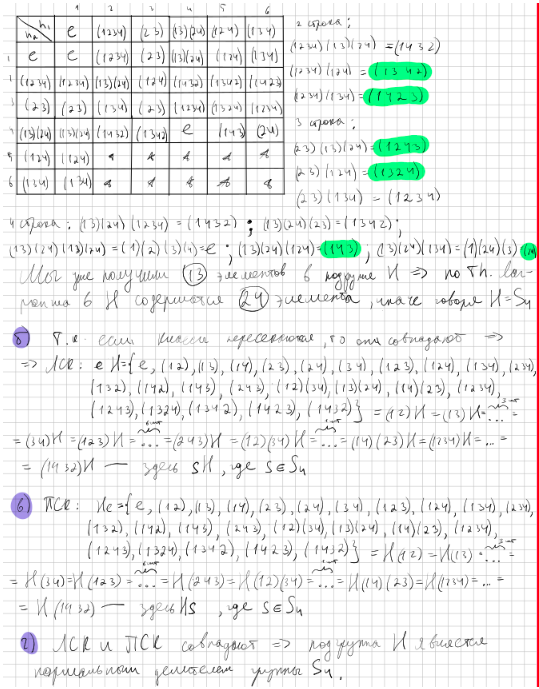 1 2 3 4 5 6
h₁ e (1234) (23) (13)(24) (124) (134)
h₂
e e (1234) (23) (13)(24) (124) (134)
(1234) (1234) (13)(24) (124) (1432) (1342) (1423)
3 (23) (23) (134) (23) (1234) (1324) (1234)
4 (13)(24) (13)(24) (1432) (1342) e (143) (24)
5 (124) (124)
6 (134) (134)
2 строка:
(1234)(13)(24) = (1432)
(1234)(124) = (1342)
(1234)(134) = (1423)
3 строка:
(23)(13)(24) = (1243)
(23)(124) = (1324)
(23)(134) = (1234)
4 строка: (13)(24)(1234) = (1432); (13)(24)(23) = (1342);
(13)(24)(13)(24) = (1)(2)(3)(4) = e; (13)(24)(124) = (143); (13)(24)(134) = (1)(24)(3) = (24)
Мы уже получили 13 элементов в подгруппе H => по Th. Лаг-
ранжа в H содержится 24 элемента, иначе говоря H = S₄
б) Т.к. если классы пересекаются, то они совпадают =>
=> ЛСК: eH = {e, (12), (13), (14), (23), (24), (34), (123), (124), (134), (234),
(132), (142), (143), (243), (12)(34), (13)(24), (14)(23), (1234),
(1243), (1324), (1342), (1423), (1432)} = (12)H = (13)H = ... =
= (34)H = (123)H = ... = (243)H = (12)(34)H = ... = (14)(23)H = (1234)H = ... =
= (1432)H — здесь sH, где s ∈ S₄
в) ПСК: He = {e, (12), (13), (14), (23), (24), (34), (123), (124), (134), (234),
(132), (142), (143), (243), (12)(34), (13)(24), (14)(23), (1234),
(1243), (1324), (1342), (1423), (1432)} = H(12) = H(13) = ... =
= H(34) = H(123) = ... = H(243) = H(12)(34) = ... = H(14)(23) = H(1234) = ... =
= H(1432) — здесь Hs, где s ∈ S₄
г) ЛСК и ПСК совпадают => подгруппа H является
нормальным делителем группы S₄.